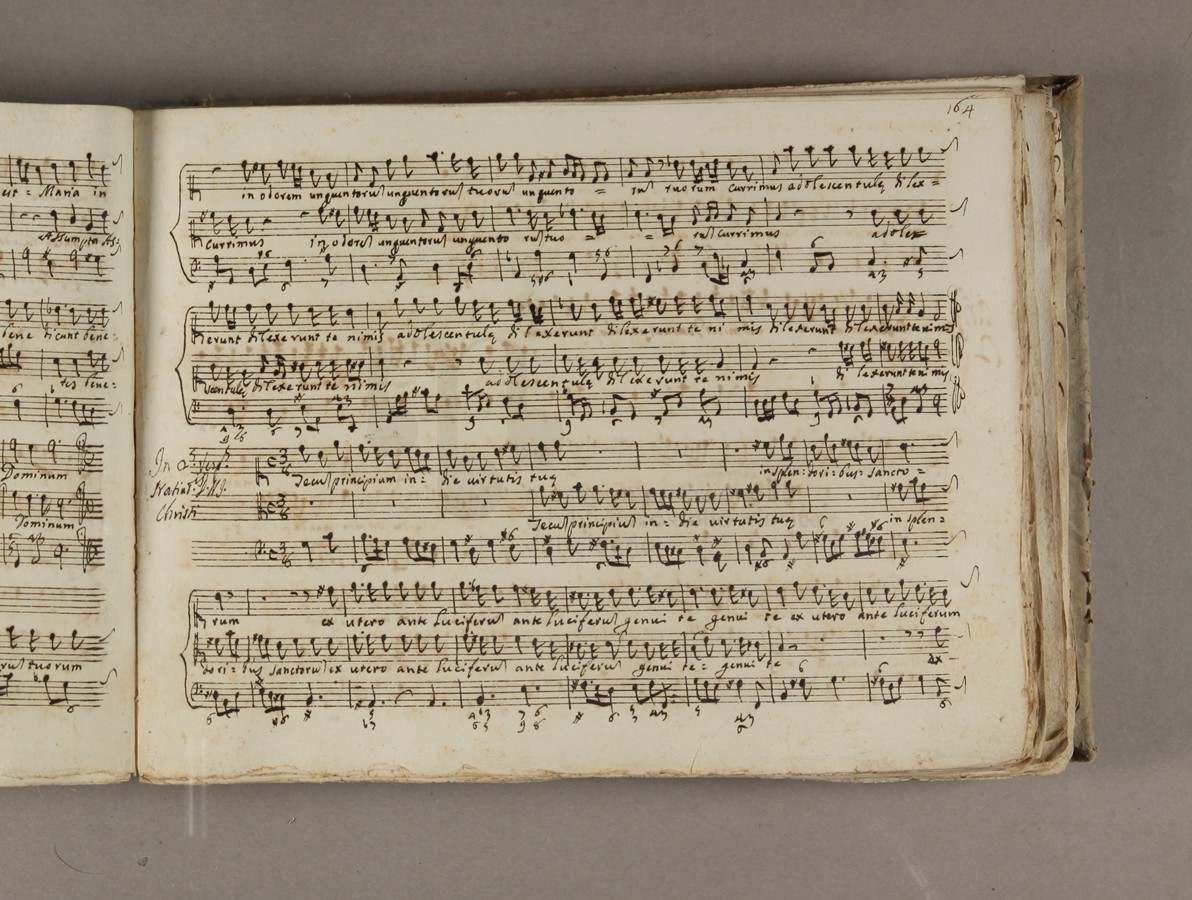 est = Maria in
Assumpta
bene dicunt bene:
bene:
Dominum
Dominum
tuorum
164
in odorem unguentoruʃ unguentoruʃ tuoruʃ unguento = ruʃ tuorum currimus adolescentulę dilex =
currimus in odoreʃ unguentoruʃ unguento ruʃ tuo = = ruʃ currimus adolex
erunt dilexerunt te nimis adolescentulę dilexerunt dilexerunt te ni mis dilexerunt dilexerunt te nimis
scentulę dilexerunt te nimis adolescentulę dilexerunt te nimis dilexerunt te nimis
In
Christi
Tecuʃ principium in = die virtutis tuę in splen = dori = bus = sancto =
Tecuʃ principiuʃ in = die virtutis tuę in splen =
rum ex utero ante Luciferuʃ ante luciferuʃ genui te genui te ex utero ante luciferum
dori = bus sanctoruʃ ex utero ante luciferuʃ ante luciferuʃ genui te = genui te ex